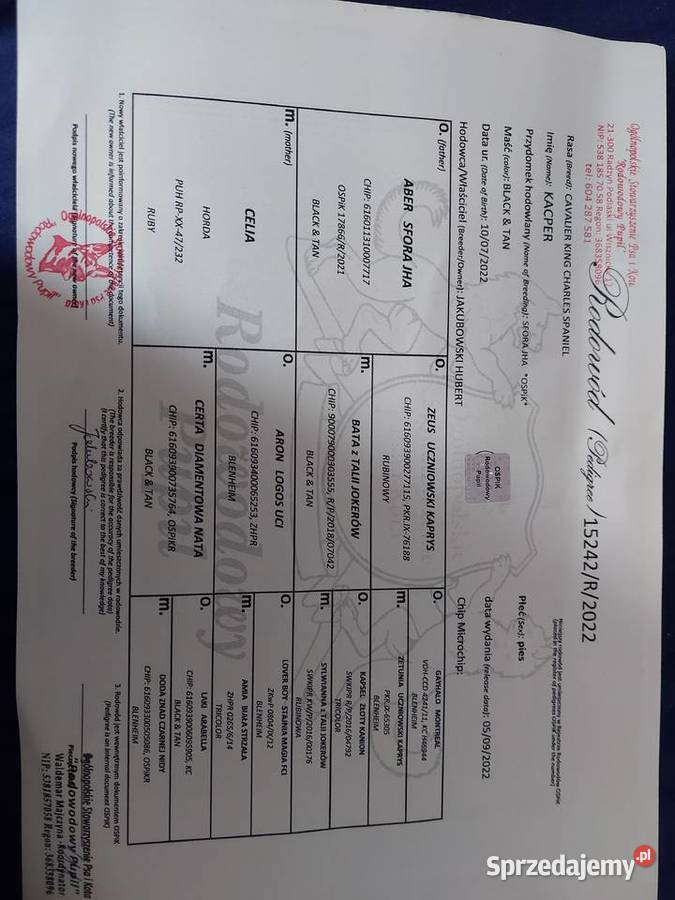 Ogólnopolskie Stowarzyszenie Psa i Kota
"Rodowodowy Pupil"
21-300 Radzyń Podlaski ul Wisznicka 111
NIP: 538 185 70 58 Regon: 368358096
tel: 604 287 581
Rodowód / Pedigree / 15242/R/2022
Rasa (Breed): CAVALIER KING CHARLES SPANIEL
Imię (Name): KACPER
Płeć (Sex): pies
Przydomek hodowlany (Name of Breeding): SFORA JHA *OSPIK*
Maść (color): BLACK & TAN
OSPiK
Rodowodowy
Pupil
Data ur. (Date of Birth): 10/07/2022
data wydania (release date): 05/09/2022
Hodowca/Właściciel (Breeder/Owner): JAKUBOWSKI HUBERT
Chip Microchip:
O. (father)
ABER SFORA JHA
CHIP: 616011310007717
OSPIK 17866/R/2021
BLACK & TAN
O.
ZEUS UCZNIOWSKI KAPRYS
CHIP: 616093900277115, PKR.IX-76188
RUBINOWY
m.
BATA z TALII JOKERÓW
CHIP: 900079000303555, R/P/2018/07042
BLACK & TAN
O.
GAYHALO MONTREAL
VDH-CCD 4241/11, KC H46944
BLENHEIM
m.
ZETUNIA UCZNIOWSKI KAPRYS
PKR.IX-65305
BLENHEIM
O.
KAPSEL ZŁOTY KANION
SWKIPR R/P/2016/04792
TRICOLOR
m.
SYLWIANNA z TALII JOKERÓW
SWKIPR KW/P/2016/00176
RUBINOWA
m. (mother)
CELIA
HORDA
PUH RP-XX-47/232
RUBY
O.
ARON LOGOS UCI
CHIP: 616093400065253, ZHPR
BLENHEIM
m.
CERTA DIAMENTOWA NATA
CHIP: 616093900735764, OSPiKR
BLACK & TAN
O.
LOVER BOY - STAJNIA MAGIA FCI
ZKwP 0804/00/12
BLENHEIM
m.
AMIA BIAŁA STRZAŁA
ZHPR 0265/6/14
TRICOLOR
O.
LAKI ARABELLA
CHIP: 6160939006055905, KC
BLACK & TAN
m.
DODA ZNAD CZARNEJ NIDY
CHIP: 616093300505086, OSPiKR
BLENHEIM
Rodowodowy
Pupil
1. Nowy właściciel jest poinformowany o zakresie tego dokumentu.
Podpis nowego właściciela (Signature of the new owner)
Rodowodowy Pupil
2. Hodowca odpowiada za prawdziwość danych umieszczonych w rodowodzie.
(The breeder is responsible for the accuracy of the pedigree data)
(I certify that this pedigree is correct to the best of my knowledge)
Podpis hodowcy (Signature of the breeder)
3. Rodowód jest wewnętrznym dokumentem OSPiK
(Pedigree is an internal document OSPiK)
Ogólnopolskie Stowarzyszenie Psa i Kota
"Rodowodowy Pupil"
Waldemar Majczyna - Koordynator
NIP: 5381857058 Regon: 368358096
Sprzedajemy.pl